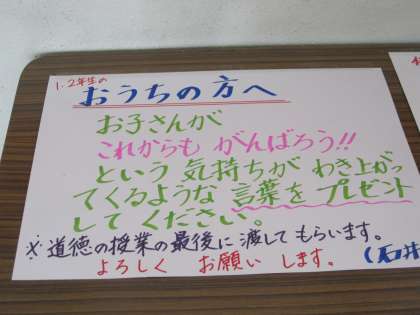 1.2年生の
おうちの方へ
お子さんが
これからも がんばろう!!
という 気持ちが わき上がっ
てくるような 言葉を プレゼント
してください。
※道徳の授業の最後に渡してもらいます。
よろしく お願い します。
(石井